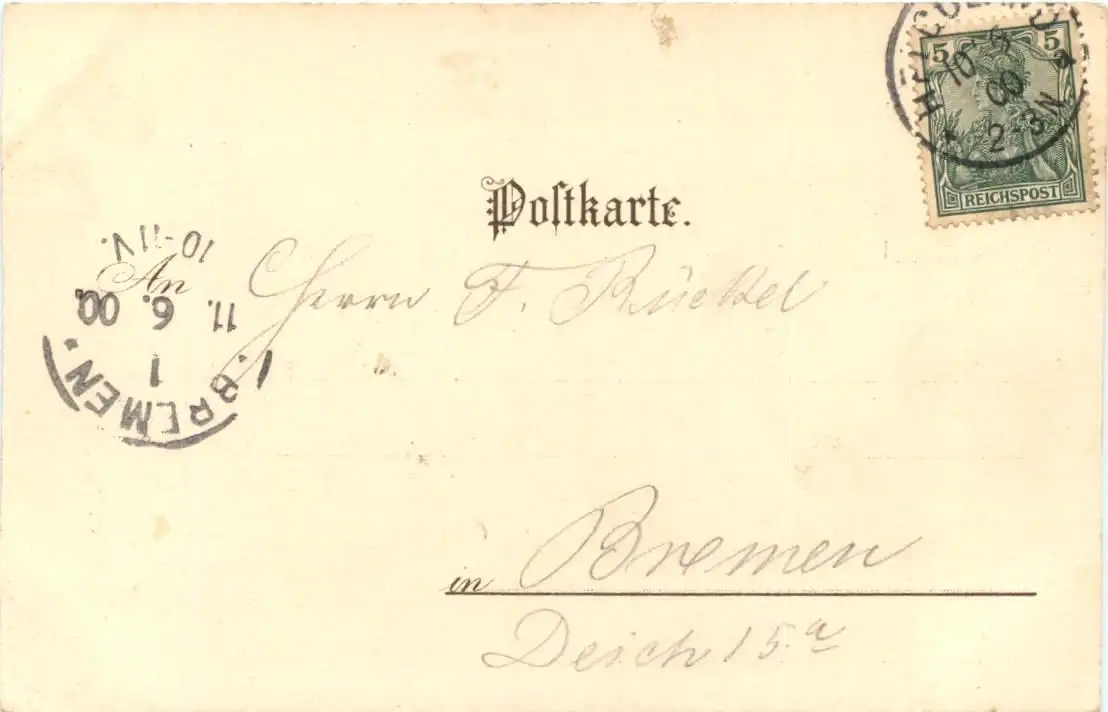 HELGOLAND
5 5
10 6
00
2-3N
a
REICHSPOST
Postkarte.
An Herrn F. Rückel
10-11V.
11. 6. 00.
1
BREMEN.
in Bremen
Deich 15.a